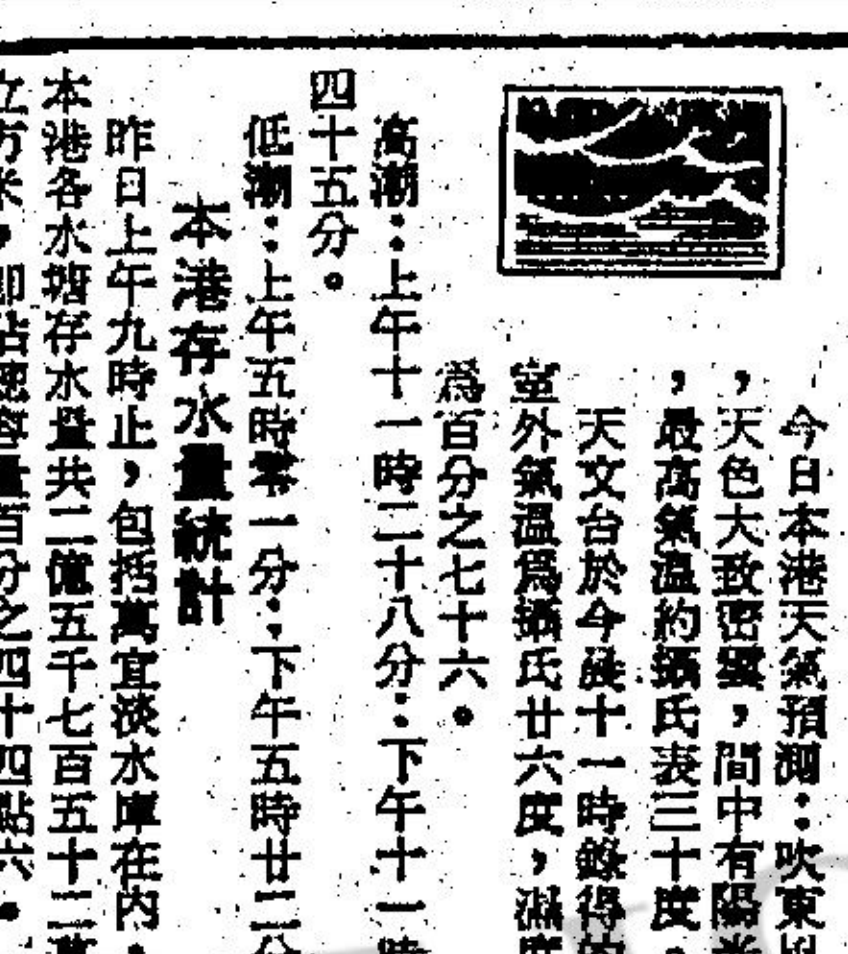 今日本港天氣預測：吹東
，天色大致密雲，間中有陽光
，最高氣溫約攝氏表三十度。
天文台於今晨十一時錄得的
室外氣溫爲攝氏廿六度，濕度
爲百分之七十六。
高潮：上午十一時二十八分：下午十一時
四十五分。
低潮：上午五時零一分：下午五時廿二分
本港存水量統計
昨日上午九時止，包括萬宜淡水庫在內，
本港各水塘存水量共二億五千七百五十二萬
立方米，卽佔總容量百分之四十四點六。